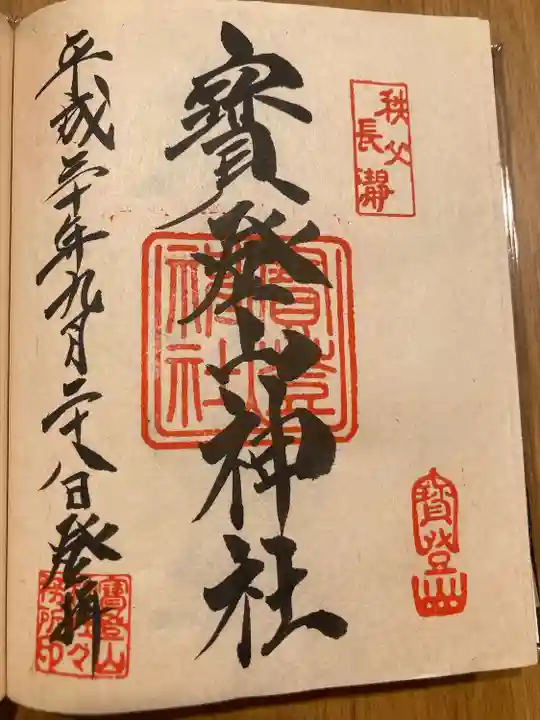 秩父
長瀞
寶登山神社
寶登山
神社
寶登山
平成三十年九月二十八日登拝
寶登山
神社々
務所印